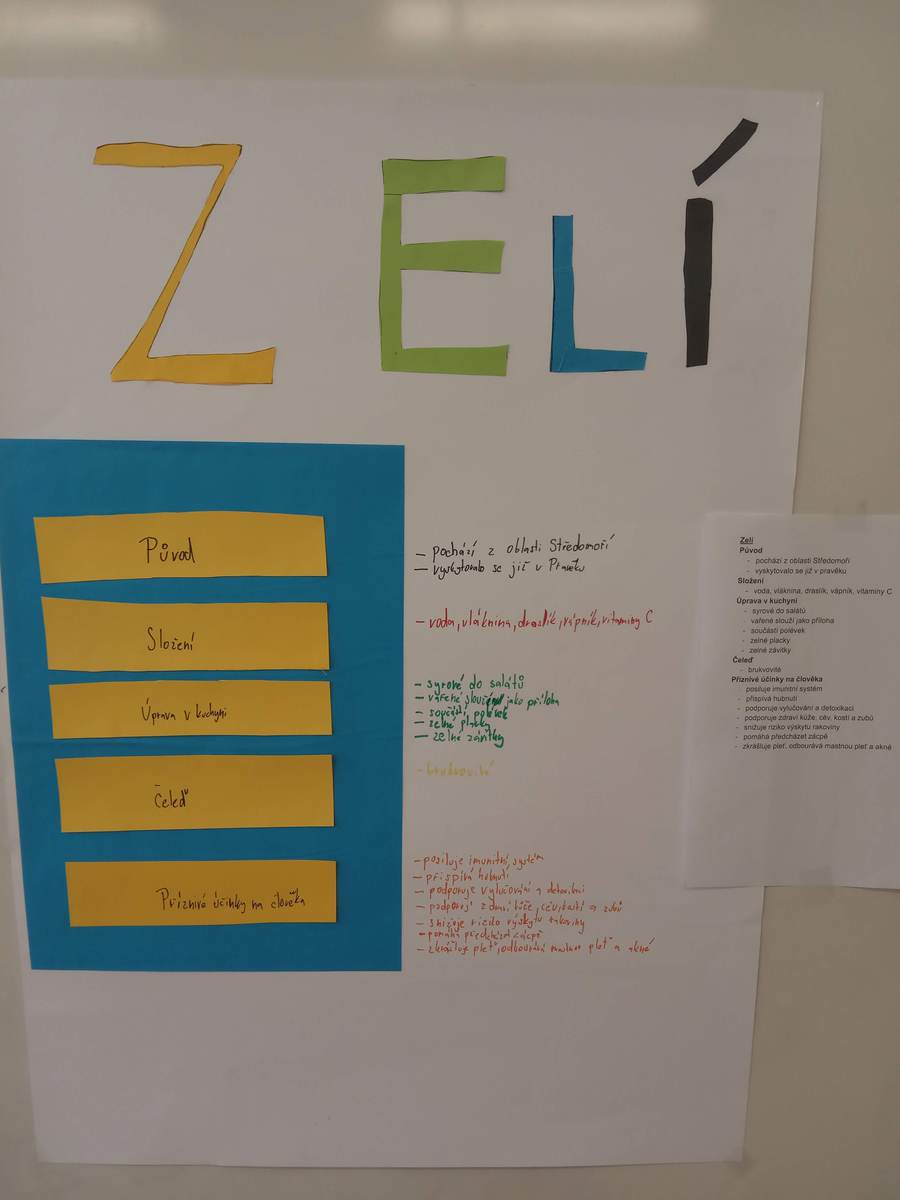 ZELÍ
Původ
- pochází z oblasti Středomoří
- vyskytovalo se již v Pravěku
Složení
- voda, vláknina, draslík, vápník, vitaminy C
Úprava v kuchyni
- syrové do salátů
- vařené slouží jako příloha
- součástí polévek
- zelné placky
- zelné závitky
Čeleď
- brukvovité
Příznivé účinky na člověka
- posiluje imunitní systém
- přispívá hubnutí
- podporuje vylučování a detoxikaci
- podporují zdraví kůže, cév, kostí a zubů
- snižuje riziko výskytu rakoviny
- pomáhá předcházet zácpě
- zkrášluje pleť, odbourává mastnou pleť a akné
Zelí
Původ
- pochází z oblasti Středomoří
- vyskytovalo se již v pravěku
Složení
- voda, vláknina, draslík, vápník, vitaminy C
Úprava v kuchyni
- syrové do salátů
- vařené slouží jako příloha
- součástí polévek
- zelné placky
- zelné závitky
Čeleď
- brukvovité
Příznivé účinky na člověka
- posiluje imunitní systém
- přispívá hubnutí
- podporuje vylučování a detoxikaci
- podporuje zdraví kůže, cév, kostí a zubů
- snižuje riziko výskytu rakoviny
- pomáhá předcházet zácpě
- zkrášluje pleť, odbourává mastnou pleť a akné